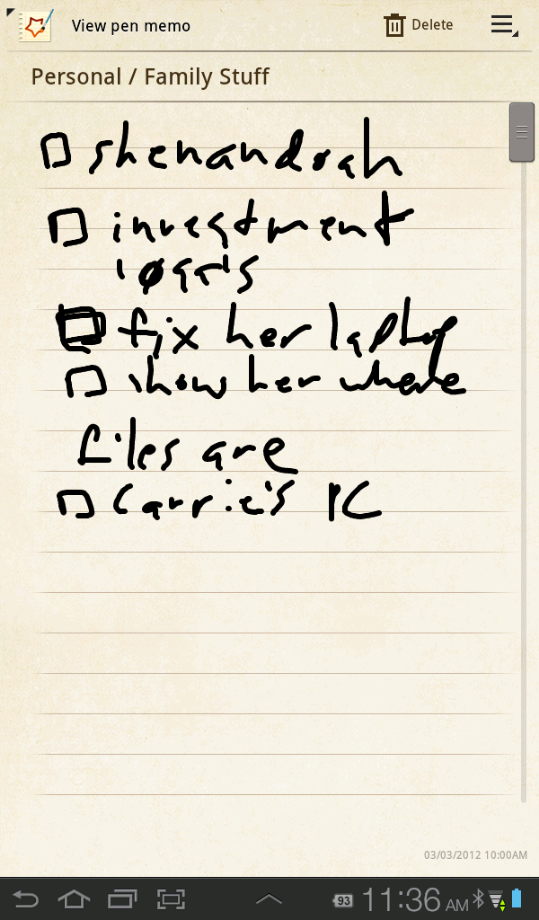 View pen memo Delete
Personal / Family Stuff
shenandoah
investment
1099's
fix her laptop
show her where
files are
Carrie's PC
03/03/2012 10:00AM
93 11:36 AM